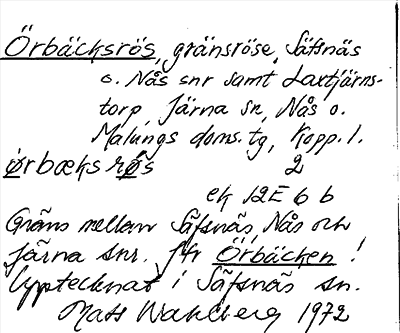 Örbäcksrös, gränsröse, Säfsnäs
o. Nås snr samt Laxtjärns-
torp, Järna sn, Nås o.
Malungs doms. tg, Kopp. l.
ørbæks røs 2
ek 12E 6 b
Gräns mellan Säfsnäs, Nås och
Järna snr. Jfr Örbäcken!
Upptecknat i Säfsnäs sn.
Mats Wahlberg 1972